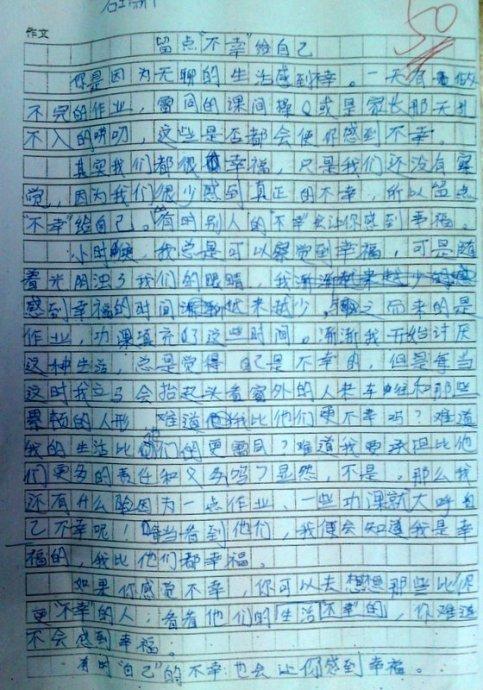 作文
50
留点"不幸"给自己
你是因为无聊的生活感到不幸。一天有做
不完的作业,雷同的课间操或是家长那无孔
不入的唠叨,这些是否都会使你感到不幸。
其实我们都很幸福,只是我们还没有察
觉,因为我们很少感到真正的不幸,所以留点
"不幸"给自己。有时别人的"不幸"会让你感到幸福。
小时候,我总是可以察觉到幸福,可是随
着光阴浊了我们的眼睛,我
感到幸福的时间越来越少,之而来的是
作业,功课填充了这些时间。渐渐我开始讨厌
这种生活,总是觉得自己是不幸的,但是每当
这时我立马会抬起头看窗外的人来车往和那些
累顿的人形,难道我比他们更不幸吗?难道
我的生活比他们的更雷同?难道我要承担比他
们更多的责任和义务吗?显然,不是。那么我
还有什么脸因为一点作业、一些功课就大呼自
己不幸呢,每当看到他们,我便会知道我是幸
福的,我比他们都幸福。
如果你感觉不幸,你可以去想想那些比你
更"不幸"的人,看看他们的生活"不幸"的,你难道
不会感到幸福。
有时"自己"的不幸也会让你感到幸福。